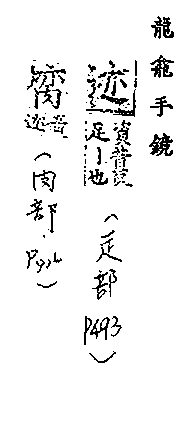 龍龕手鏡
迹資昔反足丨也（辵部 P493）
音迹（肉部．